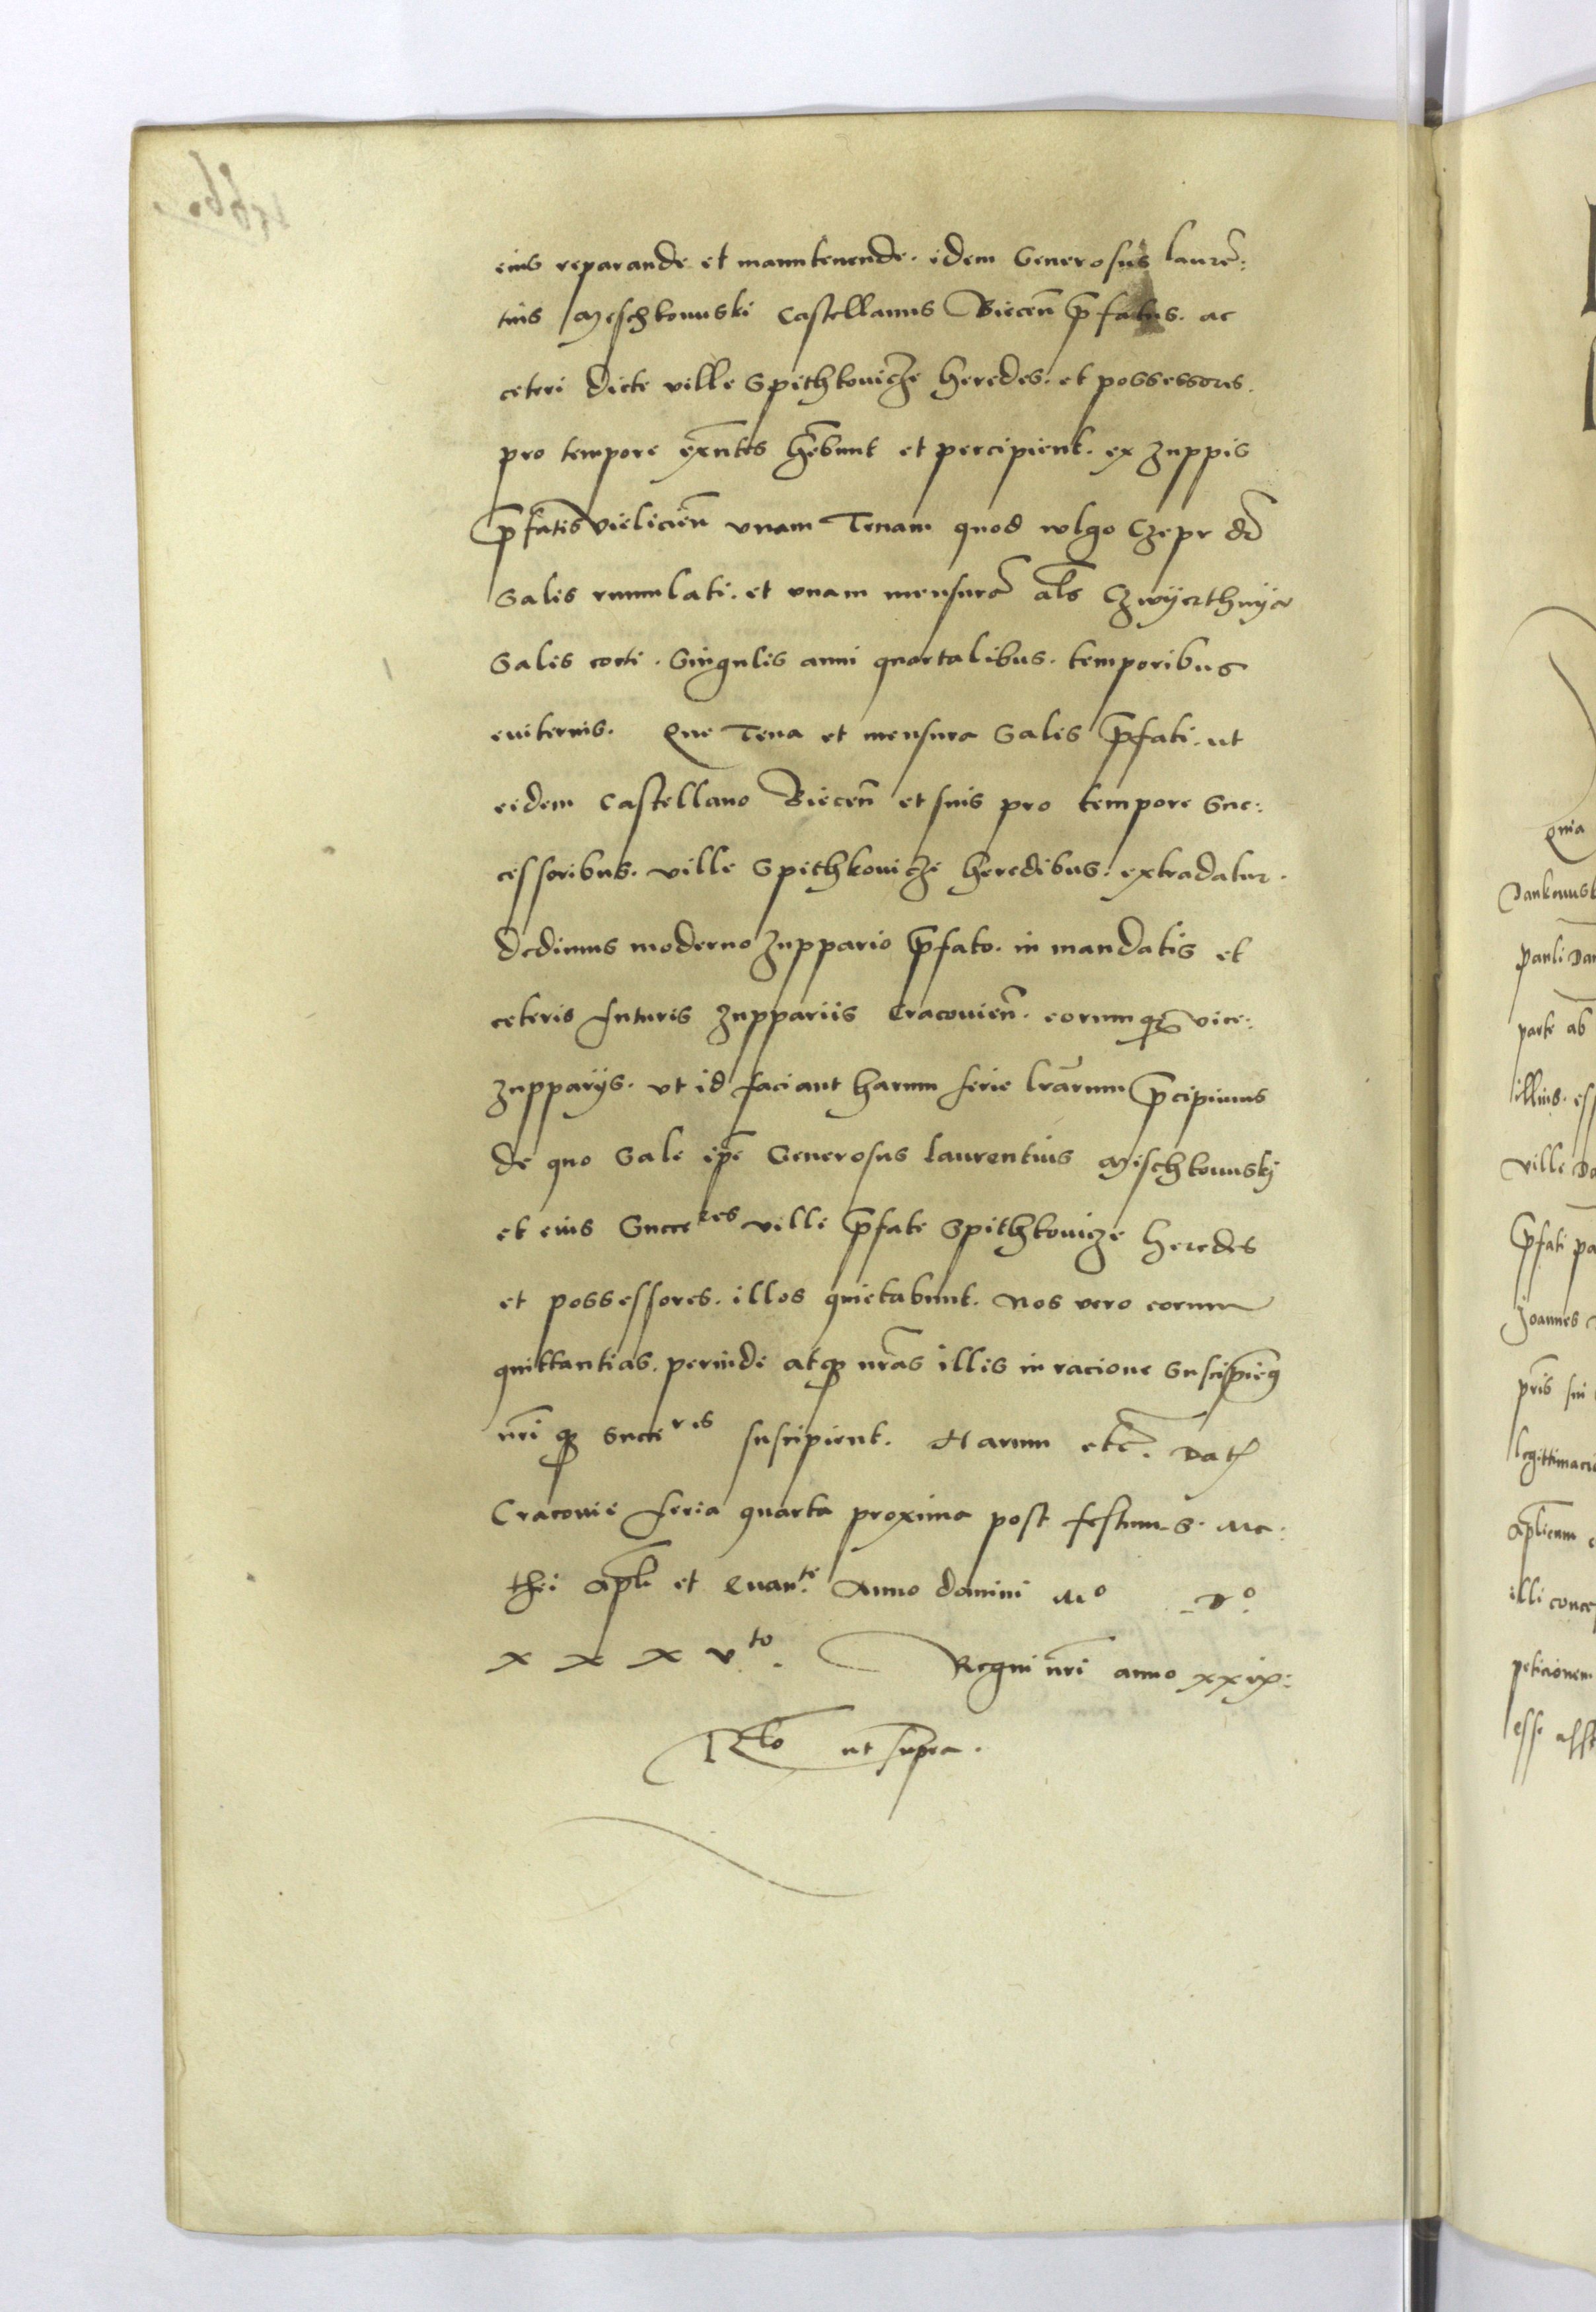 eius reparande et manutenende. idem Generosus Lauré:
tius Myschkowski Castellanus Biecen̄ p̄fatus. ac
ceteri dicte ville Spithkouicze heredes. et possessores.
pro tempore exn̄tes hēbunt et percipient. ex zuppis
p̄fatis Vieliciēn vnam Tenam quod wlgo Czepr dr̄
Salis rumulati. et vnam mensurā als̄ Czwijerthnya
Salis cocti. Singulis anni quartalibus. temporibus
euiternis. Que Tena et mensura Salis p̄fati. ut
eidem Castellano Biecen̄ et suis pro tempore Suc:
cessoribus. ville Spithkouicze heredibus. extradatur.
dedimus moderno zuppario p̄fato. in mandatis et
ceteris futuris zuppariis Cracouien̄. eorumq̨ vice:
zupparijs. vt id faciant harum serie lr̄arum p̄cipimus
de quo Sale ip̄e Generosus Laurentius Mischkouuskj
et eius Succe^res ville p̄fate Spithkouicze heredes
et possessores. illos quietabunt. Nos vero eorum
quittantias. perinde atq̨ nr̄as illis in racione Suscipiemꝰ
nr̄i q̨ Succe^res suscipient. Harum etc̄. Dat̨
Cracouie feria quarta proxima post festum S. Ma:
thei apl̄i et Euan^te. Anno domini M^o D^o.
X X X v^to. Regni nr̄i anno xxix:
R^lo ut supra.
Quia
Dankowsk
Pauli Dan
parte ab
illius. ess
ville Da
p̄fati pa
Joannes
pr̄is sui
legittimaci
ap̄licum
illi conce
peticionem
esse affe